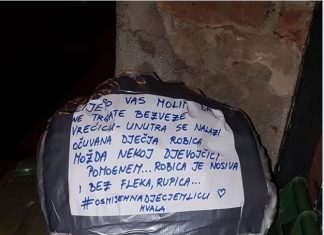 VAS MOLIM DA
NE TRGATE BEZVEZE
VREĆICU - UNUTRA SE NALAZI
OČUVANA DJEČJA ROBICA
MOŽDA NEKOJ DJEVOJČICI
POMOGNEM... ROBICA JE NOSIVA
I BEZ FLEKA, RUPICA...
#OSMIJEHNADJECJEMLICU ♡
HVALA